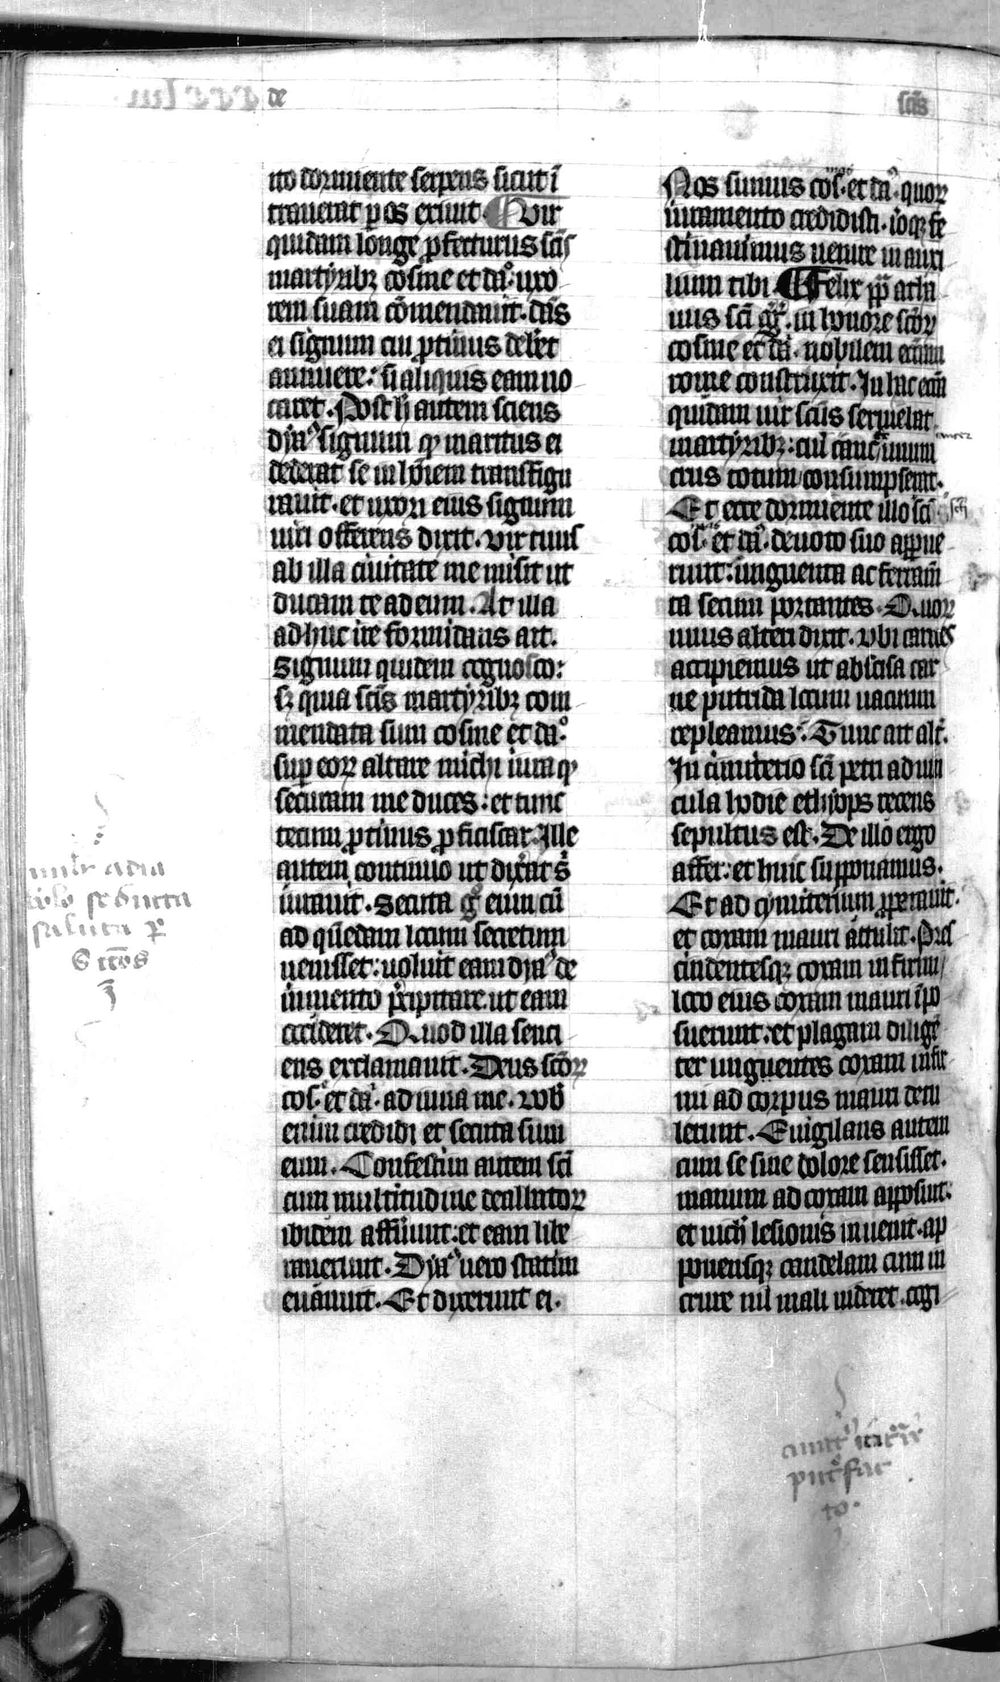 de
scīs
ito dormiente serpens sicut ī
trauerat p os exiuit. Vir
quidam longe ꝓfecturus scīs
martyribꝫ cosme et da. uxo
rem suam cōmendauit. dās
ei signum cui ꝓtinus deberet
annuere: si aliquis eam uo
caret. Post h autem sciens
dya signum qd maritus ei
dederat se in hōiem transfigu
rauit. et uxori eius signum
uiri offerens dixit. Vir tuus
ab illa ciuitate me misit ut
ducam te ad eum. At illa
ad huc ire formidans ait.
Signum quidem cognosco:
sꝫ quia scīs martyribꝫ com
mendata sum cosme et da.
sup eoꝝ altare michi iura qd
securam me duces: et tunc
tecum ꝓtinus ꝓficiscar. Ille
autem continuo ut dixerat s
iurauit. Secuta g eum cū
ad quēdam locum secretum
uenisset: uoluit eam dya de
iumento p̄cipitare ut eam
occideret. Quod illa senci
ens exclamauit. Deus scōꝝ
cos. et da. adiuua me. Vob
enim credidi et secuta sum
eum. Confestim autem scī
cum multitudine dealbatoꝝ
ibidem affuerunt: et eam libe
rauerunt. Dya uero statim
euanuit. Et dixerunt ei.
mulier a dia
bolo seducta
saluata p
Sctōs
Nos sumus cos. et da. quoꝝ
iuramento credidisti. ioqꝫ fe
stinauimus uenire in auxi
lium tibi. Felix pp atta
uus scī gg. in honore scōꝝ
cosme et da. nobilem ecciam
rome construxit. In hac ecia
quidam uir scīs seruiebat
martyribꝫ: cui cancer unum
cancer
crus totum consumpserat.
Et ecce dormiente illo scī
scī
cos. et da. deuoto suo apparue
runt: unguenta ac ferram̄
ta secum portantes. Quoꝝ
unus alteri dixit. Vbi carnes
accipiemus ut abscisa car
ne putrida locum uacuum
repleamus. Tunc ait alt.
In cimiterio scī petri ad uin
cula hodie ethyops recens
sepultus est. De illo ergo
affer: et huic supponamus.
Et ad cymiterium ꝓperauit.
et coxam mauri attulit. Pres
cindentesqꝫ coxam infirmi
loco eius coxam mauri īpo
suerunt: et plagam diligē
ter unguentes coxam infir
mi ad corpus mauri detu
lerunt. Euigilans autem
cum se sine dolore sensisset.
manum ad coxam apposuit:
et nich lesionis inuenit. ap
ponensqꝫ candelam cum in
crure nil mali uideret. cogi